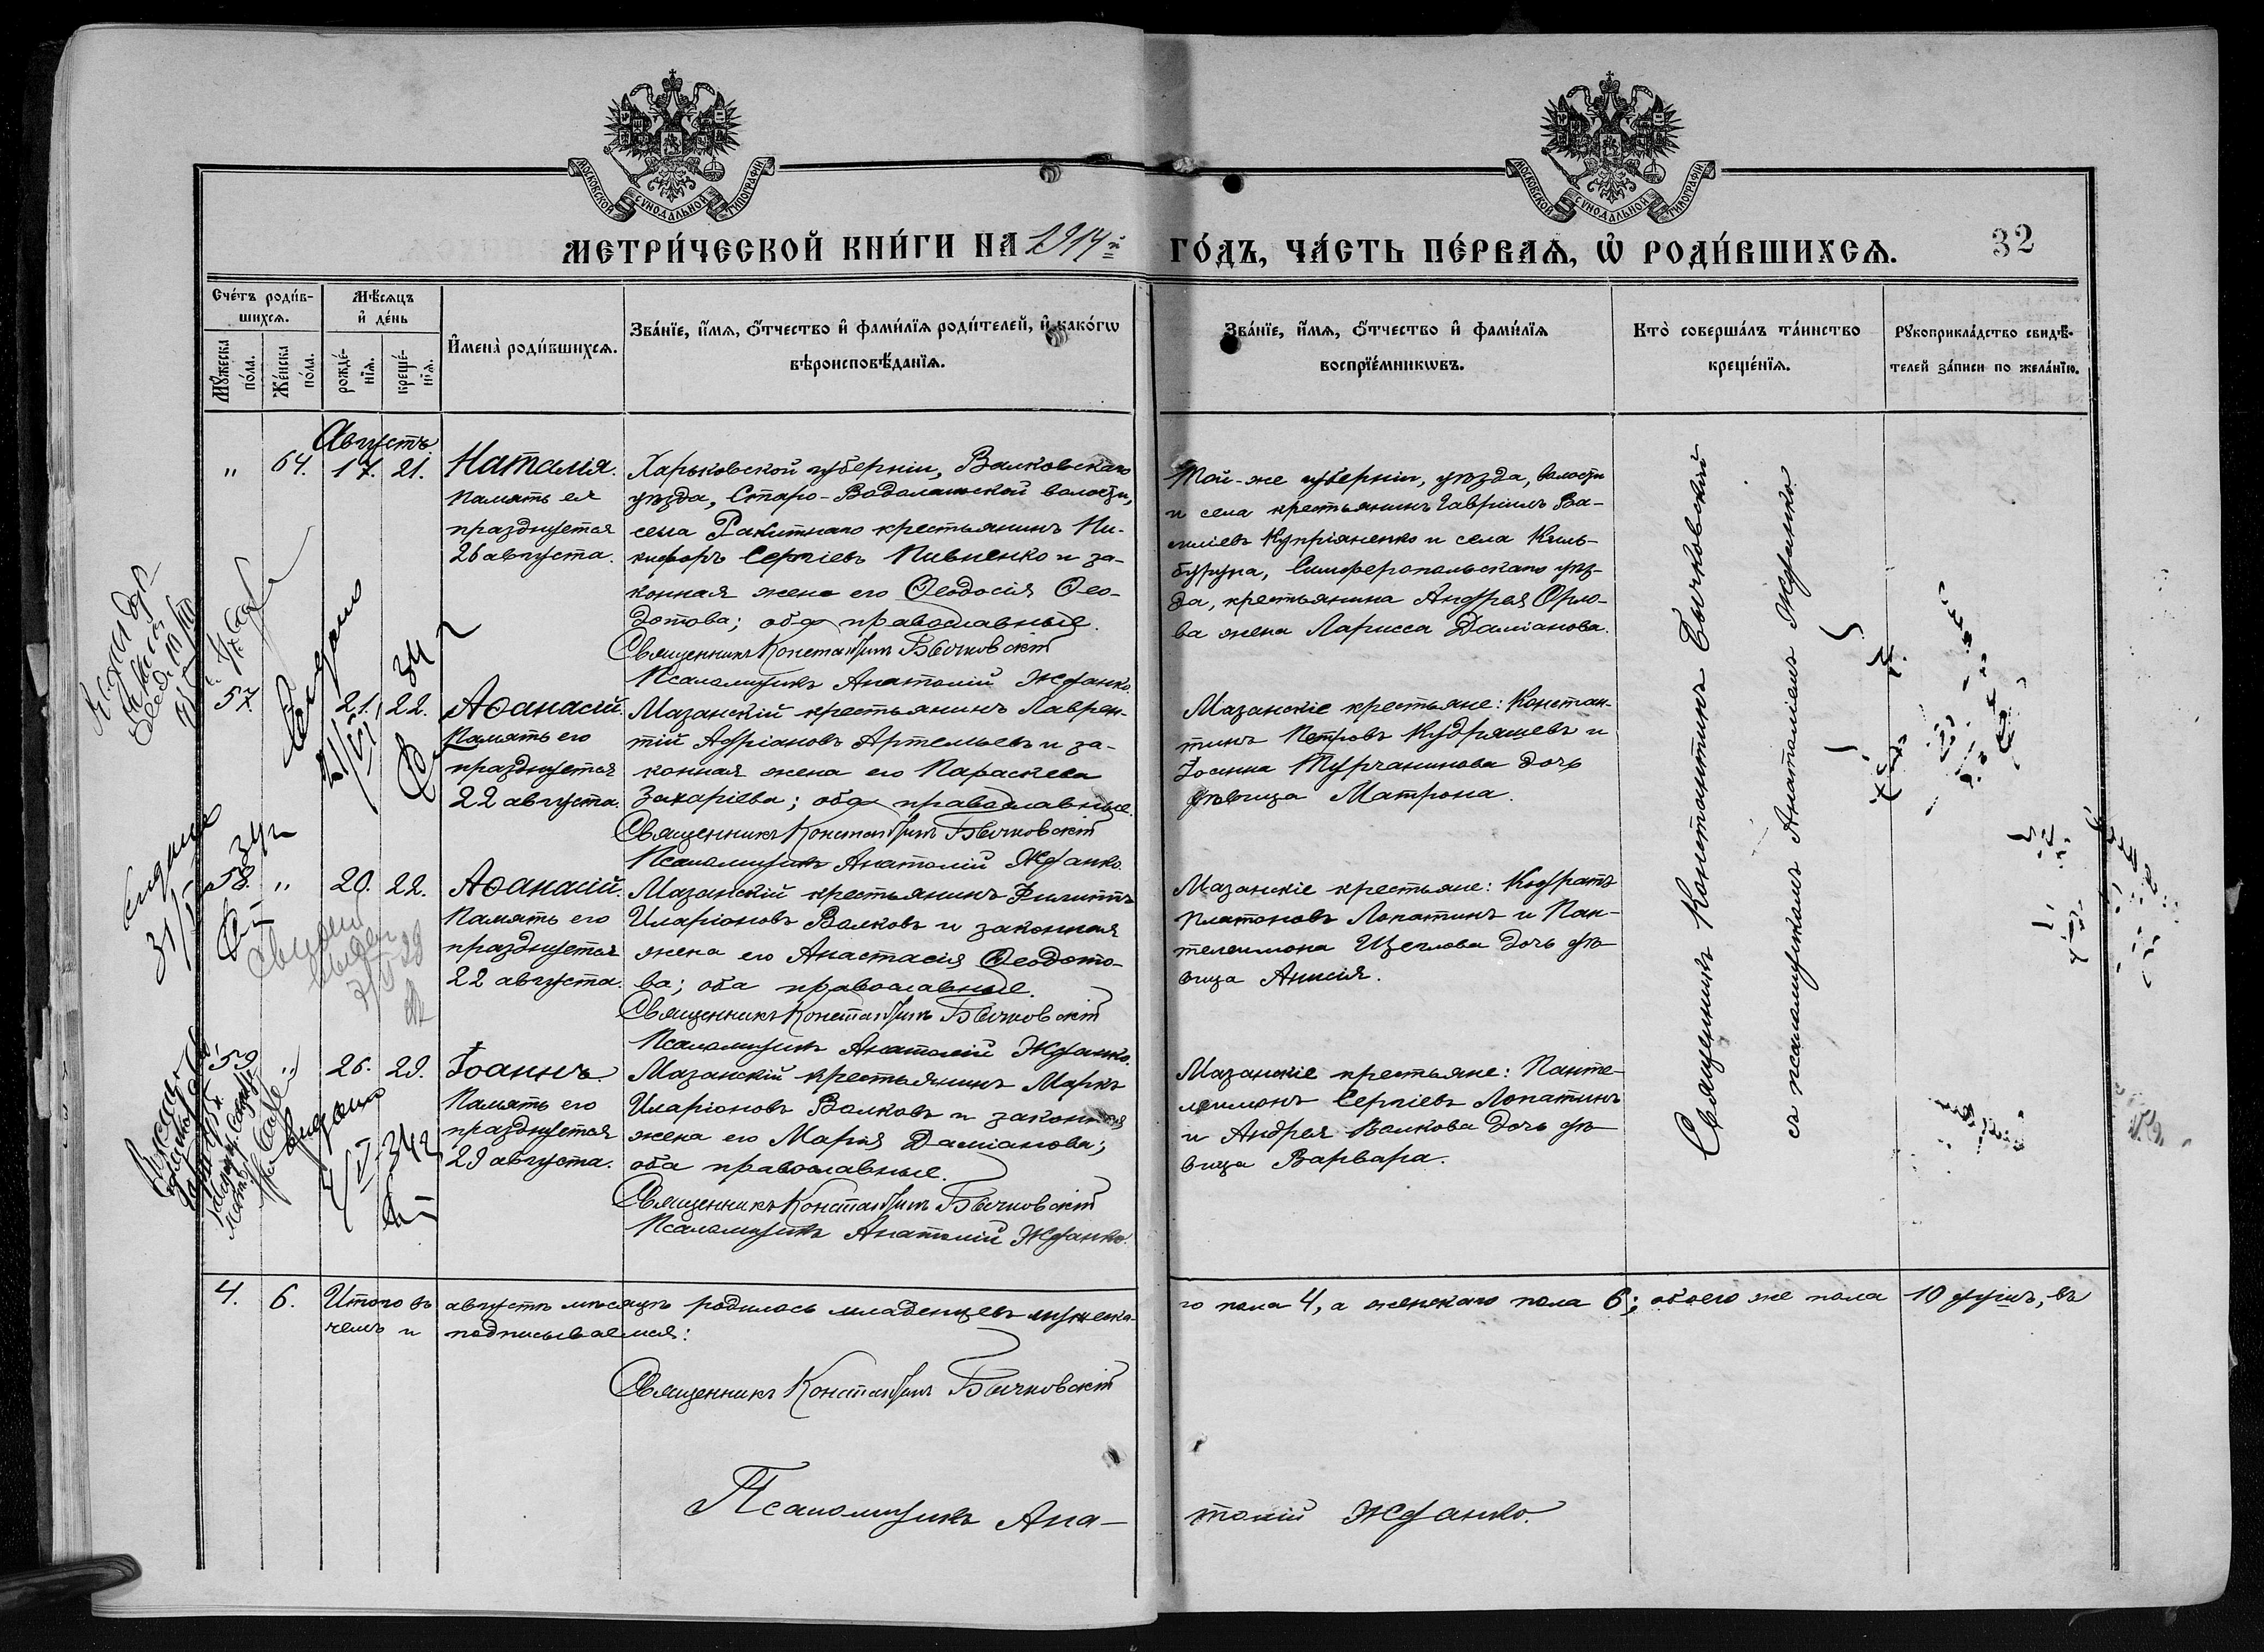 МОСКОВСКОЙ СѴНОДАЛЬНОЙ ТИПОГРАФІИ
МОСКОВСКОЙ СѴНОДАЛЬНОЙ ТИПОГРАФІИ
МЕТРИ́ЧЕСКОЙ КНИ́ГИ НА 1914й
ГО́ДЪ, ЧА́СТЬ ПЕ́РВАѦ, Ѽ РОДИ́ВШИХСѦ.
32
Сче́тъ роди́в-
шихсѧ.
Мѣ́сѧцъ
и҆ де́нь
Мꙋ́жеска
по́ла.
Же́нска
по́ла.
рожде́-
нїѧ.
креще́-
нїѧ.
И҆мена̀ роди́вшихсѧ.
Зва́нїе, и҆́мѧ, ѻ҆́тчество и҆ фами́лїѧ роди́телей, и҆ како́гѡ
вѣроисповѣ́данїѧ.
Зва́нїе, и҆́мѧ, ѻ҆́тчество и҆ фами́лїѧ
воспрїе́мникѡвъ.
Кто̀ соверша́лъ та́инство
креще́нїѧ.
Рꙋкоприкла́дство свидѣ́-
телей за́писи по жела́нїю.
Августъ.
" 64. 17. 21. Наталія.
Память ея
празднуется
26 августа.
Харьковской губерніи, Валковскаго
уѣзда, Старо-Водолажской волости,
села Ракитнаго крестьянинъ Ни-
кифоръ Сергіевъ Пивненко и за-
конная жена его Ѳеодосія Ѳео-
дотова; оба православные.
Священникъ Константинъ Бычковскій
Псаломщикъ Анатолій Жданко.
Той-же губерніи, уѣзда, волости
и села крестьянинъ Гавріилъ Ва-
силіевъ Купріяненко и села Киль-
буруна, Симферопольскаго уѣз-
да, крестьянина Андрея Орло-
ва жена Ларисса Даміанова.
57. 21. 22. Аѳанасій.
Память его
празднуется
22 августа.
Мазанскій крестьянинъ Лаврен-
тій Адріановъ Артемьевъ и за-
конная жена его Параскева
Захаріева; оба православные.
Священникъ Константинъ Бычковскій
Псаломщикъ Анатолій Жданко.
Мазанскіе крестьяне: Констан-
тинъ Петровъ Кудряшевъ и
Іоанна Турчанинова дочь
дѣвица Матрона.
58. " 20. 22. Аѳанасій.
Память его
празднуется
22 августа.
Мазанскій крестьянинъ Филиппъ
Иларіоновъ Волковъ и законная
жена его Анастасія Ѳеодото-
ва; оба православные.
Священникъ Константинъ Бычковскій
Псаломщикъ Анатолій Жданко.
Мазанскіе крестьяне: Кодратъ
Платоновъ Лопатинъ и Пан-
телеимона Щеглова дочь дѣ-
вица Анисія.
59. " 26. 29. Іоаннъ.
Память его
празднуется
29 августа.
Мазанскій крестьянинъ Маркъ
Иларіоновъ Волковъ и законная
жена его Марія Даміанова;
оба православные.
Священникъ Константинъ Бычковскій
Псаломщикъ Анатолій Жданко.
Мазанскіе крестьяне: Панте-
леимонъ Сергіевъ Лопатинъ
и Андрея Волкова дочь дѣ-
вица Варвара.
Священникъ Константинъ Бычковскій
съ псаломщикомъ Анатоліемъ Жданко.
4. 6. Итого въ августѣ мѣсяцѣ родилось младенцевъ мужеска-
го пола 4, а женскаго пола 6; обоего же пола 10 душъ, въ
чемъ и подписываемся:
Священникъ Константинъ Бычковскій
Псаломщикъ Ана-
толій Жданко.